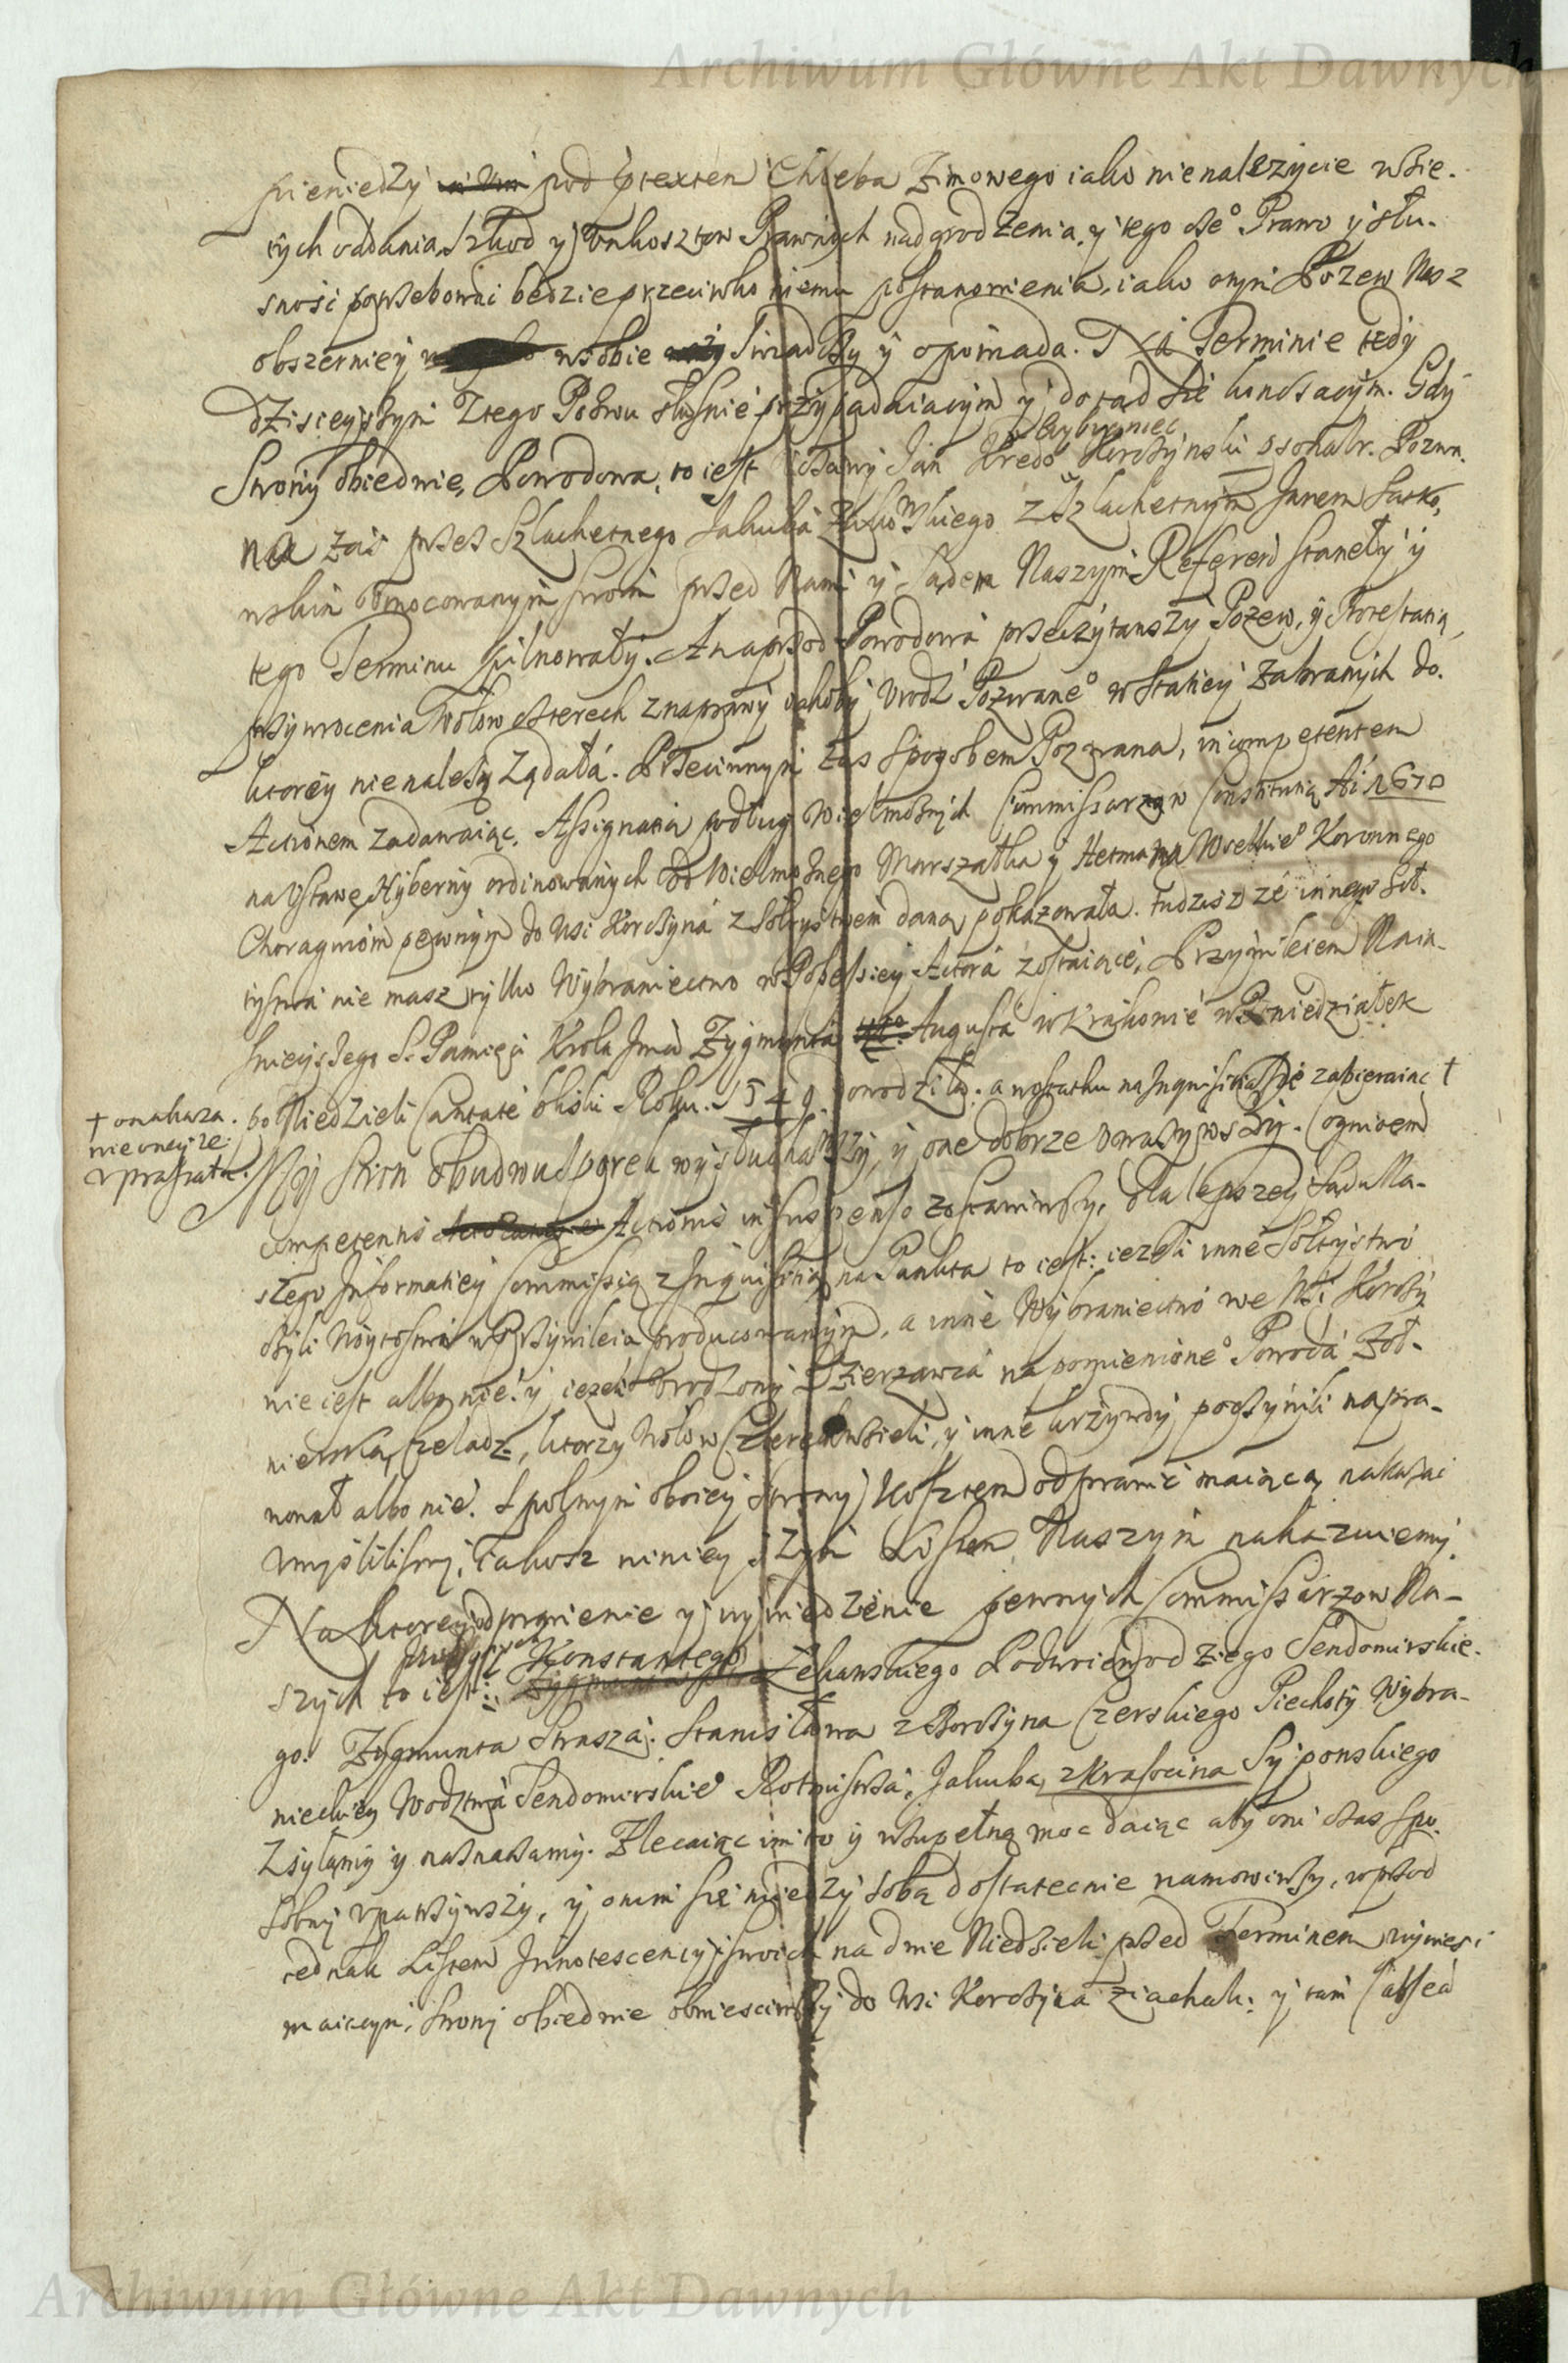 Archiwum Główne Akt Dawnych
pieniedzy pod ptextem Chleba Zimowego iako nienalezycie wzie.
tych oddania, Szkod y Vnkosztow Prawnych nadgrodzenia, y tego cze° Prawo y słu.
sność potrzebować bedzie przeciwko niemu postanowienia, iako onym Pozew Nasz
obszerniey wsobie swiadczy y opowiada. Na Terminie tedy
dzisieyszym Ztego Pozwu słusnie przypadaiącym y dotąd sie kontć Gdy
Strony obiedwie, Powodowa, to iest Jan Wybraniec Korczynski psonalr. Pozwa.
na zaś przez Szlachetnego Jakuba Zukowskiego z Szlachetnym Janem Surko,
wskim vmocowanym swoim przed Nami y Sądem Naszym Referend staneły y
tego Terminu pilnowały. A naprzod Powodowa przeczytawszy Pozew, y Protestatią,
przywrocenia Wołow czterech znaprawy iakoby Vrodz Pozwane° w staciey zabranych do.
ktorey nienalezy Ządała. Przeciwnym zas sposobem Pozwana, incompetentem
Actionem zadawaiąc, Assignatią podług Wielmożnych Commissarzow Constitutią Ai 1670
na Vstawę Hyberny ordinowanych od Wielmożnego Marszałka y Hetmana Wielkie° Koronnego
Choragwiom pewnym do Wsi Korczyna z Sołtystwem daną pokazowała. tudziesz ze innego Soł.
tystwa nie masz tylko Wybraniectwo w Possessiey Actora zostaiące, Przywileiem Naia.
snieyszego S. Pamięci Krola Jmci Zygmunta Augusta w Krakowie w Poniedziałek
po Niedzieli Cantate bliski Roku. 1549. dowodziła; a wostatku na Inquisitią się zabieraiąc †
† onakaza.
nie oneyze
vpraszała.
My Stron obudwu sporek wysłuchawszy, y one dobrze vważywszy. Cognitiem
competentis Actionis in suspenso zostawiwszy, dla lepszey Sądu Na-
szego Informaciey Commissią z Inquisitią na Punkta to iest: iezeli inne Sołtystwo
czyli Woytostwo w Przywileiu producowanym, a inne Wybraniectwo we Wsi Korczy
nie iest albo nie? y iezeli Vrodzony Dzierzawca na pomienione° Powoda Zoł-
nierską Czeladz, ktorzy Wołow Czterech wzieli, y inne krzywdy poczynili napra-
wował albo nie? Spolnym oboiey Strony Kosztem odprawić maiącą nakazać
vmyślilismy, Iakosz ninieyszym Listem Naszym nakazuiemy.
Na ktorey odprawienie y wywiedzenie pewnych Commissarzow Na-
szych to iest: Vrodzonych Konstantego Lekawskiego Podwoiewodziego Sendomirskie.
go. Zygmunta Strasza. Stanisława z Borzyna Czerskiego Piechoty Wybra-
nieckiey Wodztwa Sendomirskie° Rotmistrza, Jakuba z Krasocina Syponskiego
Zsyłamy y naznaczamy. Zlecaiąc im to y wzupełną moc daiąc aby oni czas spo.
sobny vpatrzywszy, y onim się miedzy sobą dostatecznie namowiwszy, wprzod
iednak Listem Innotescencyi swoich na dwie Niedzieli przed Terminem wynieść
maiącym, Strony obiedwie obwiesciwszy do Wsi Korczyna ziachali: y tam
Archiwum Główne Akt Dawnych